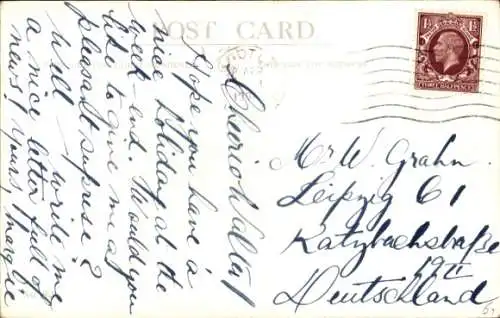 POST CARD
Cheerio Walter!
Hope you have a
nice Holiday at the
week-end. Would you
like to give me a
pleasant suprese?
Well write me
a nice letter full of
news! Yours, Margie
1½ 1½
THREE HALFPENCE
Mr W. Grahn
Leipzig C 1
Katzbachstraße
19II
Deutschland